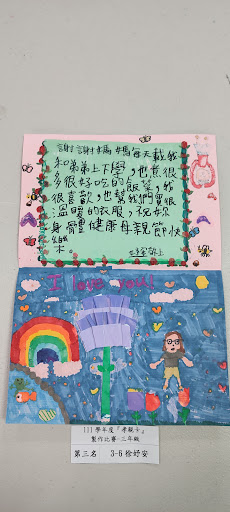 謝謝媽媽每天載我
和弟弟上下學，也煮很
多很好吃的飯菜，我
很喜歡，也幫我們買很
溫暖的衣服，祝妳
身體健康母親節快
樂
I love you!
111學年度「孝親卡」
製作比賽 三年級
第三名 3-6 徐妤安